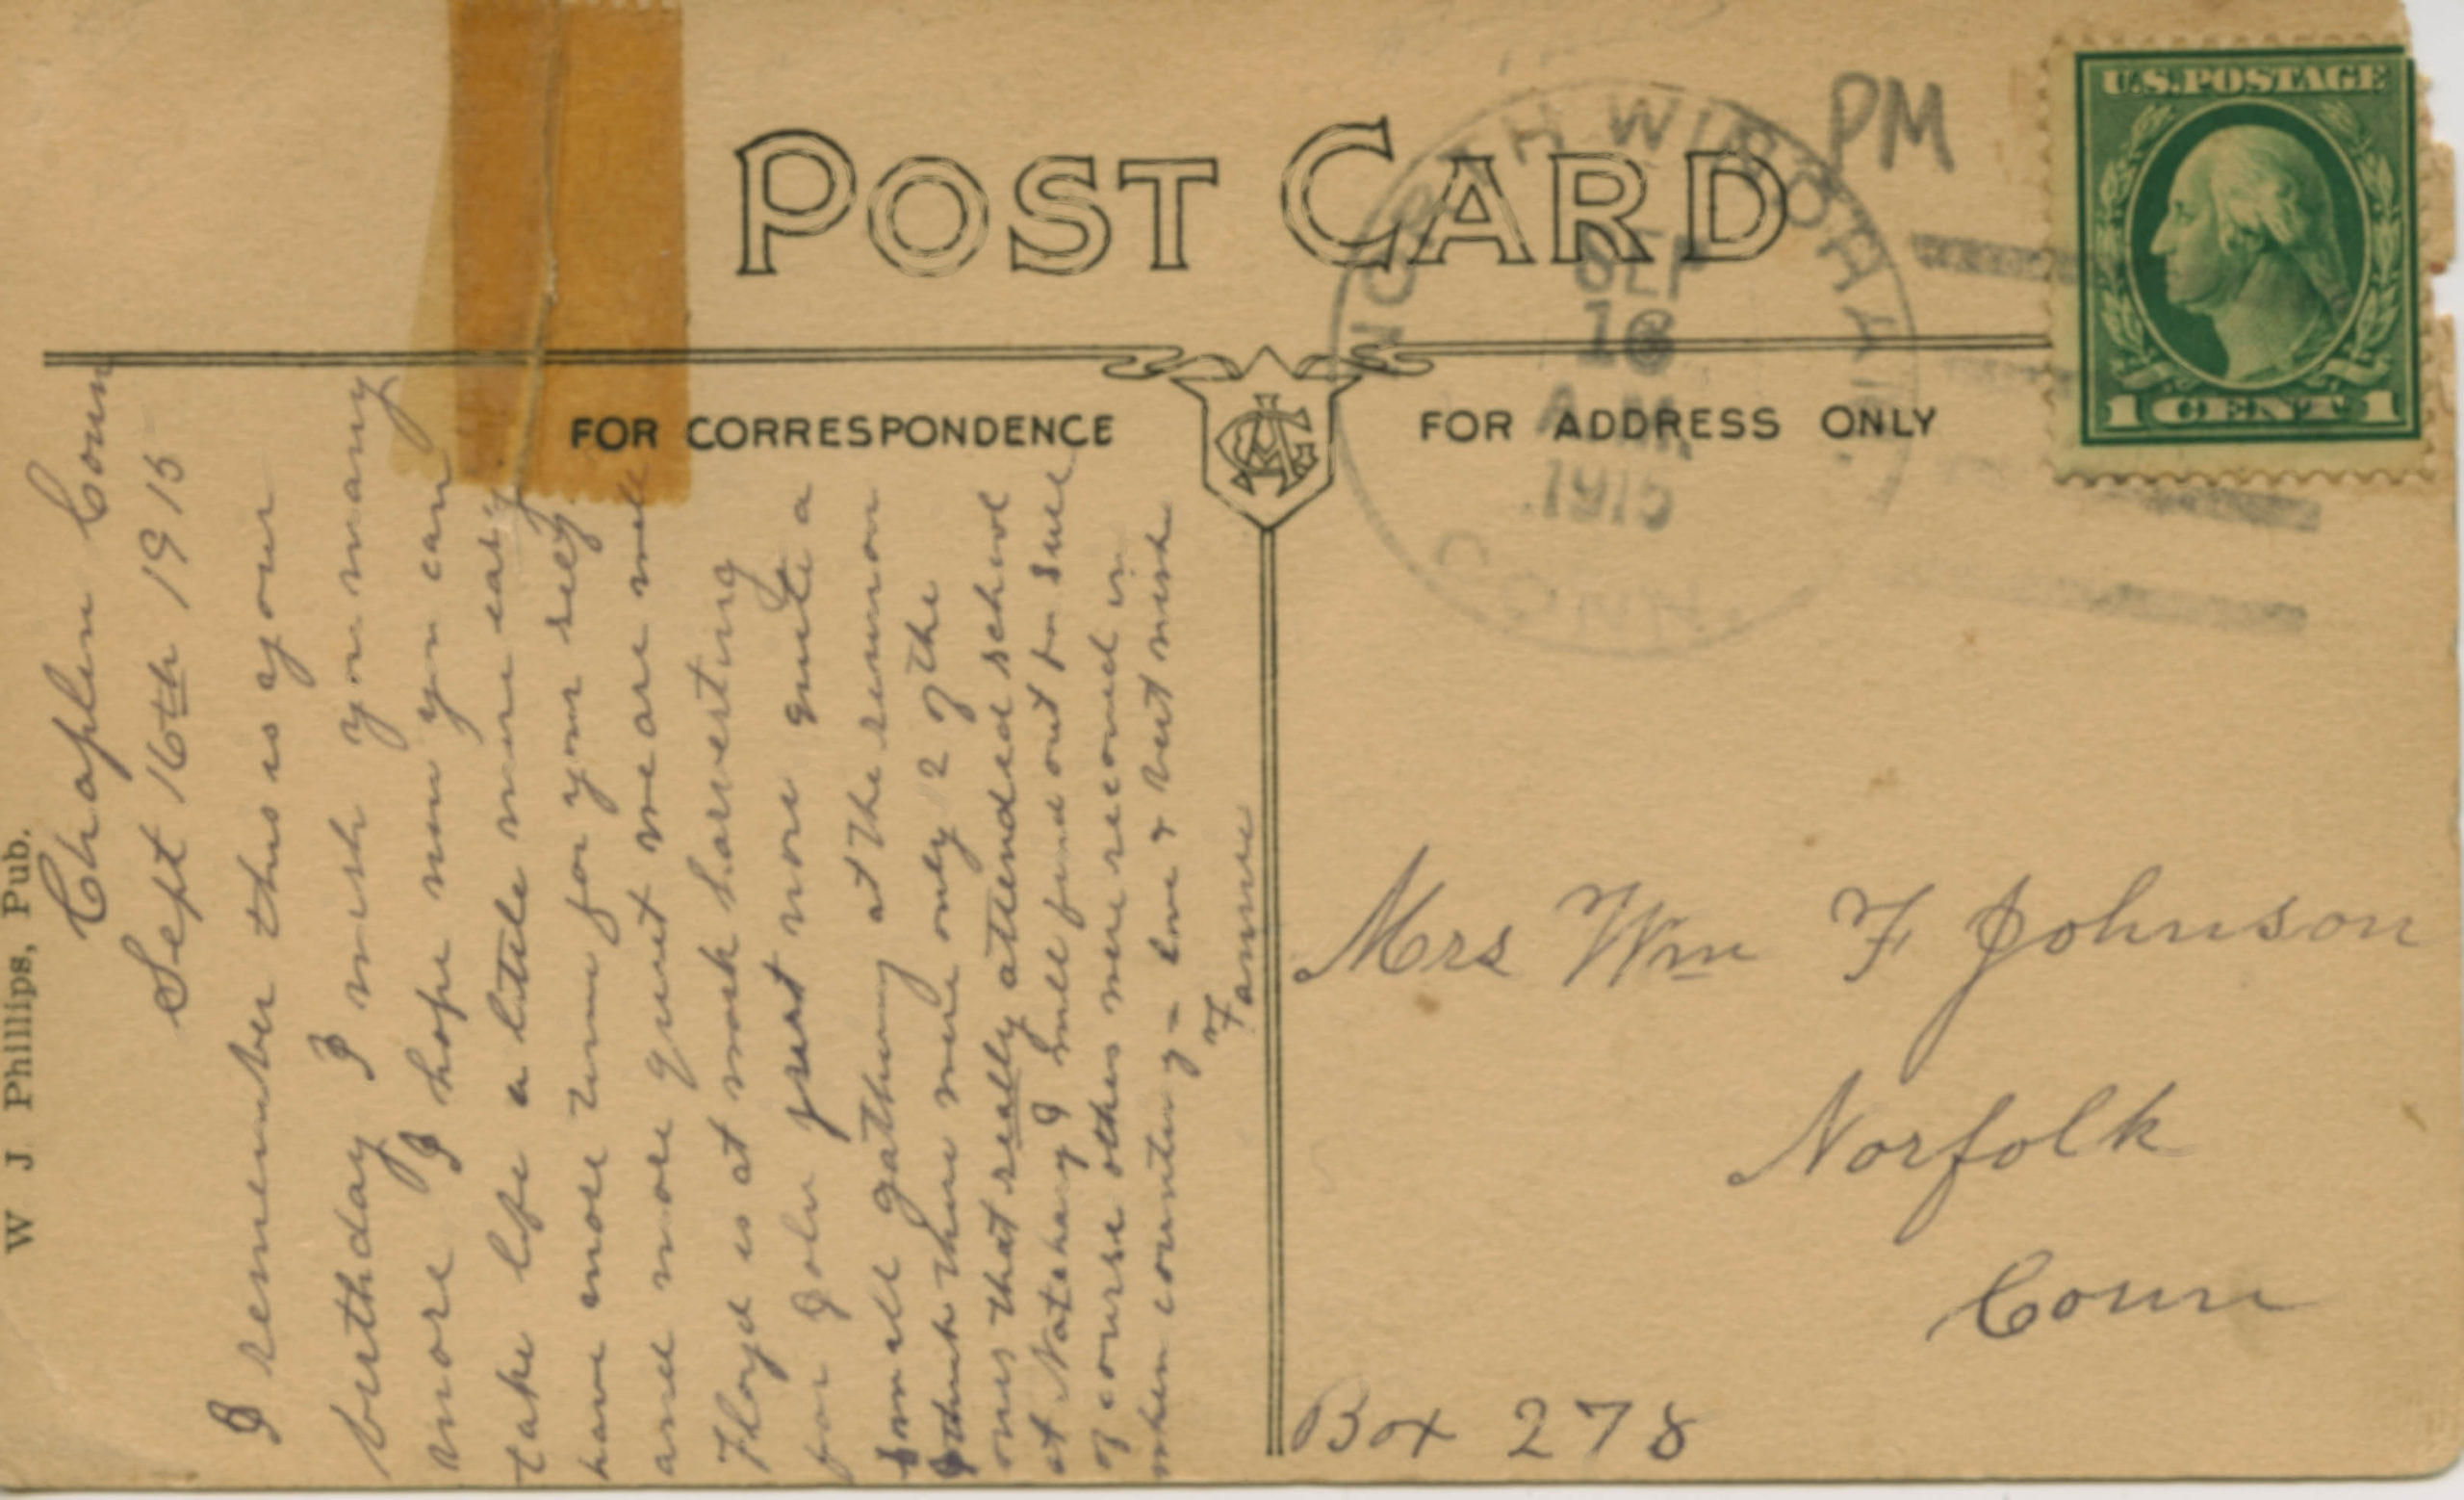 POST CARD
FOR CORRESPONDENCE
FOR ADDRESS ONLY
U.S. POSTAGE
1 CENT 1
NORTH WINDHAM
CONN.
SEP
16
A.M.
1915
PM
W J Phillips, Pub.
Chaplin Conn
Sept 16th 1915
I remember this is your
birthday I wish you many
more I hope now you can
take life a little more easy
have more time for your self
and more quiet we are well
Floyd is at work harvesting
for John just now quite a
small gathering at the reunion
I think there were only 2 of the
ones that really attended school
at Natchaug I will find out for sure
of course others were received in
when country y- love & best wish
Fannie
Mrs Wm F Johnson
Norfolk
Conn
Box 278